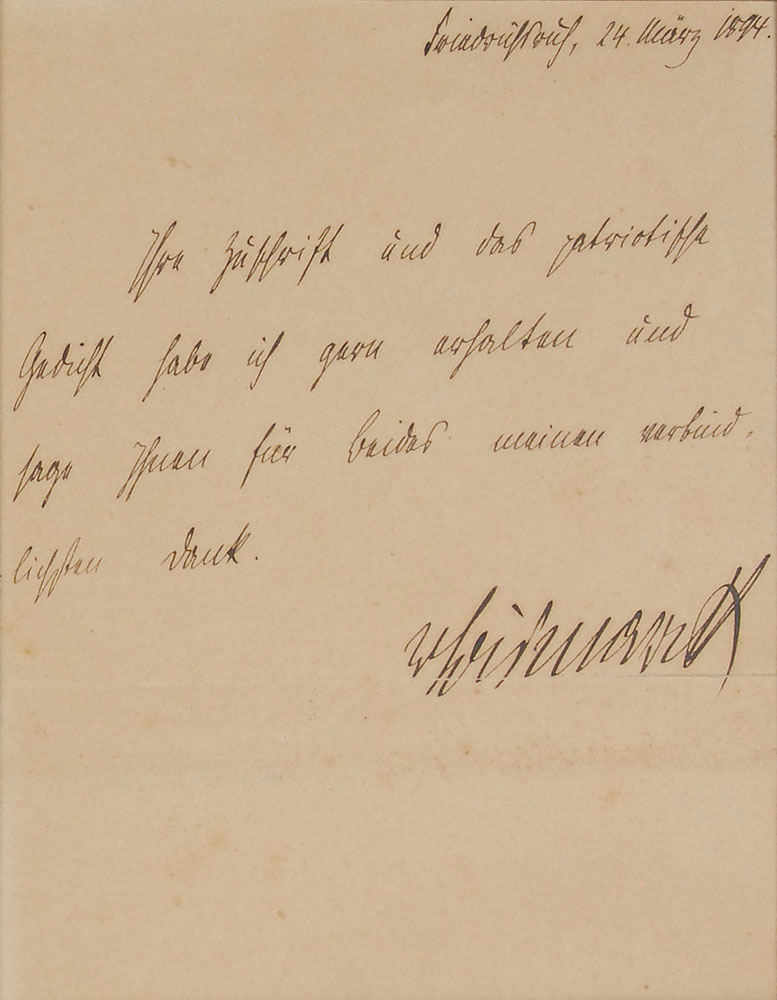 Friedrichsruh, 24. März 1894.
Ihre Zuschrift und das patriotische
Gedicht habe ich gern erhalten und
sage Ihnen für beides meinen verbind-
lichsten Dank.
vBismarck